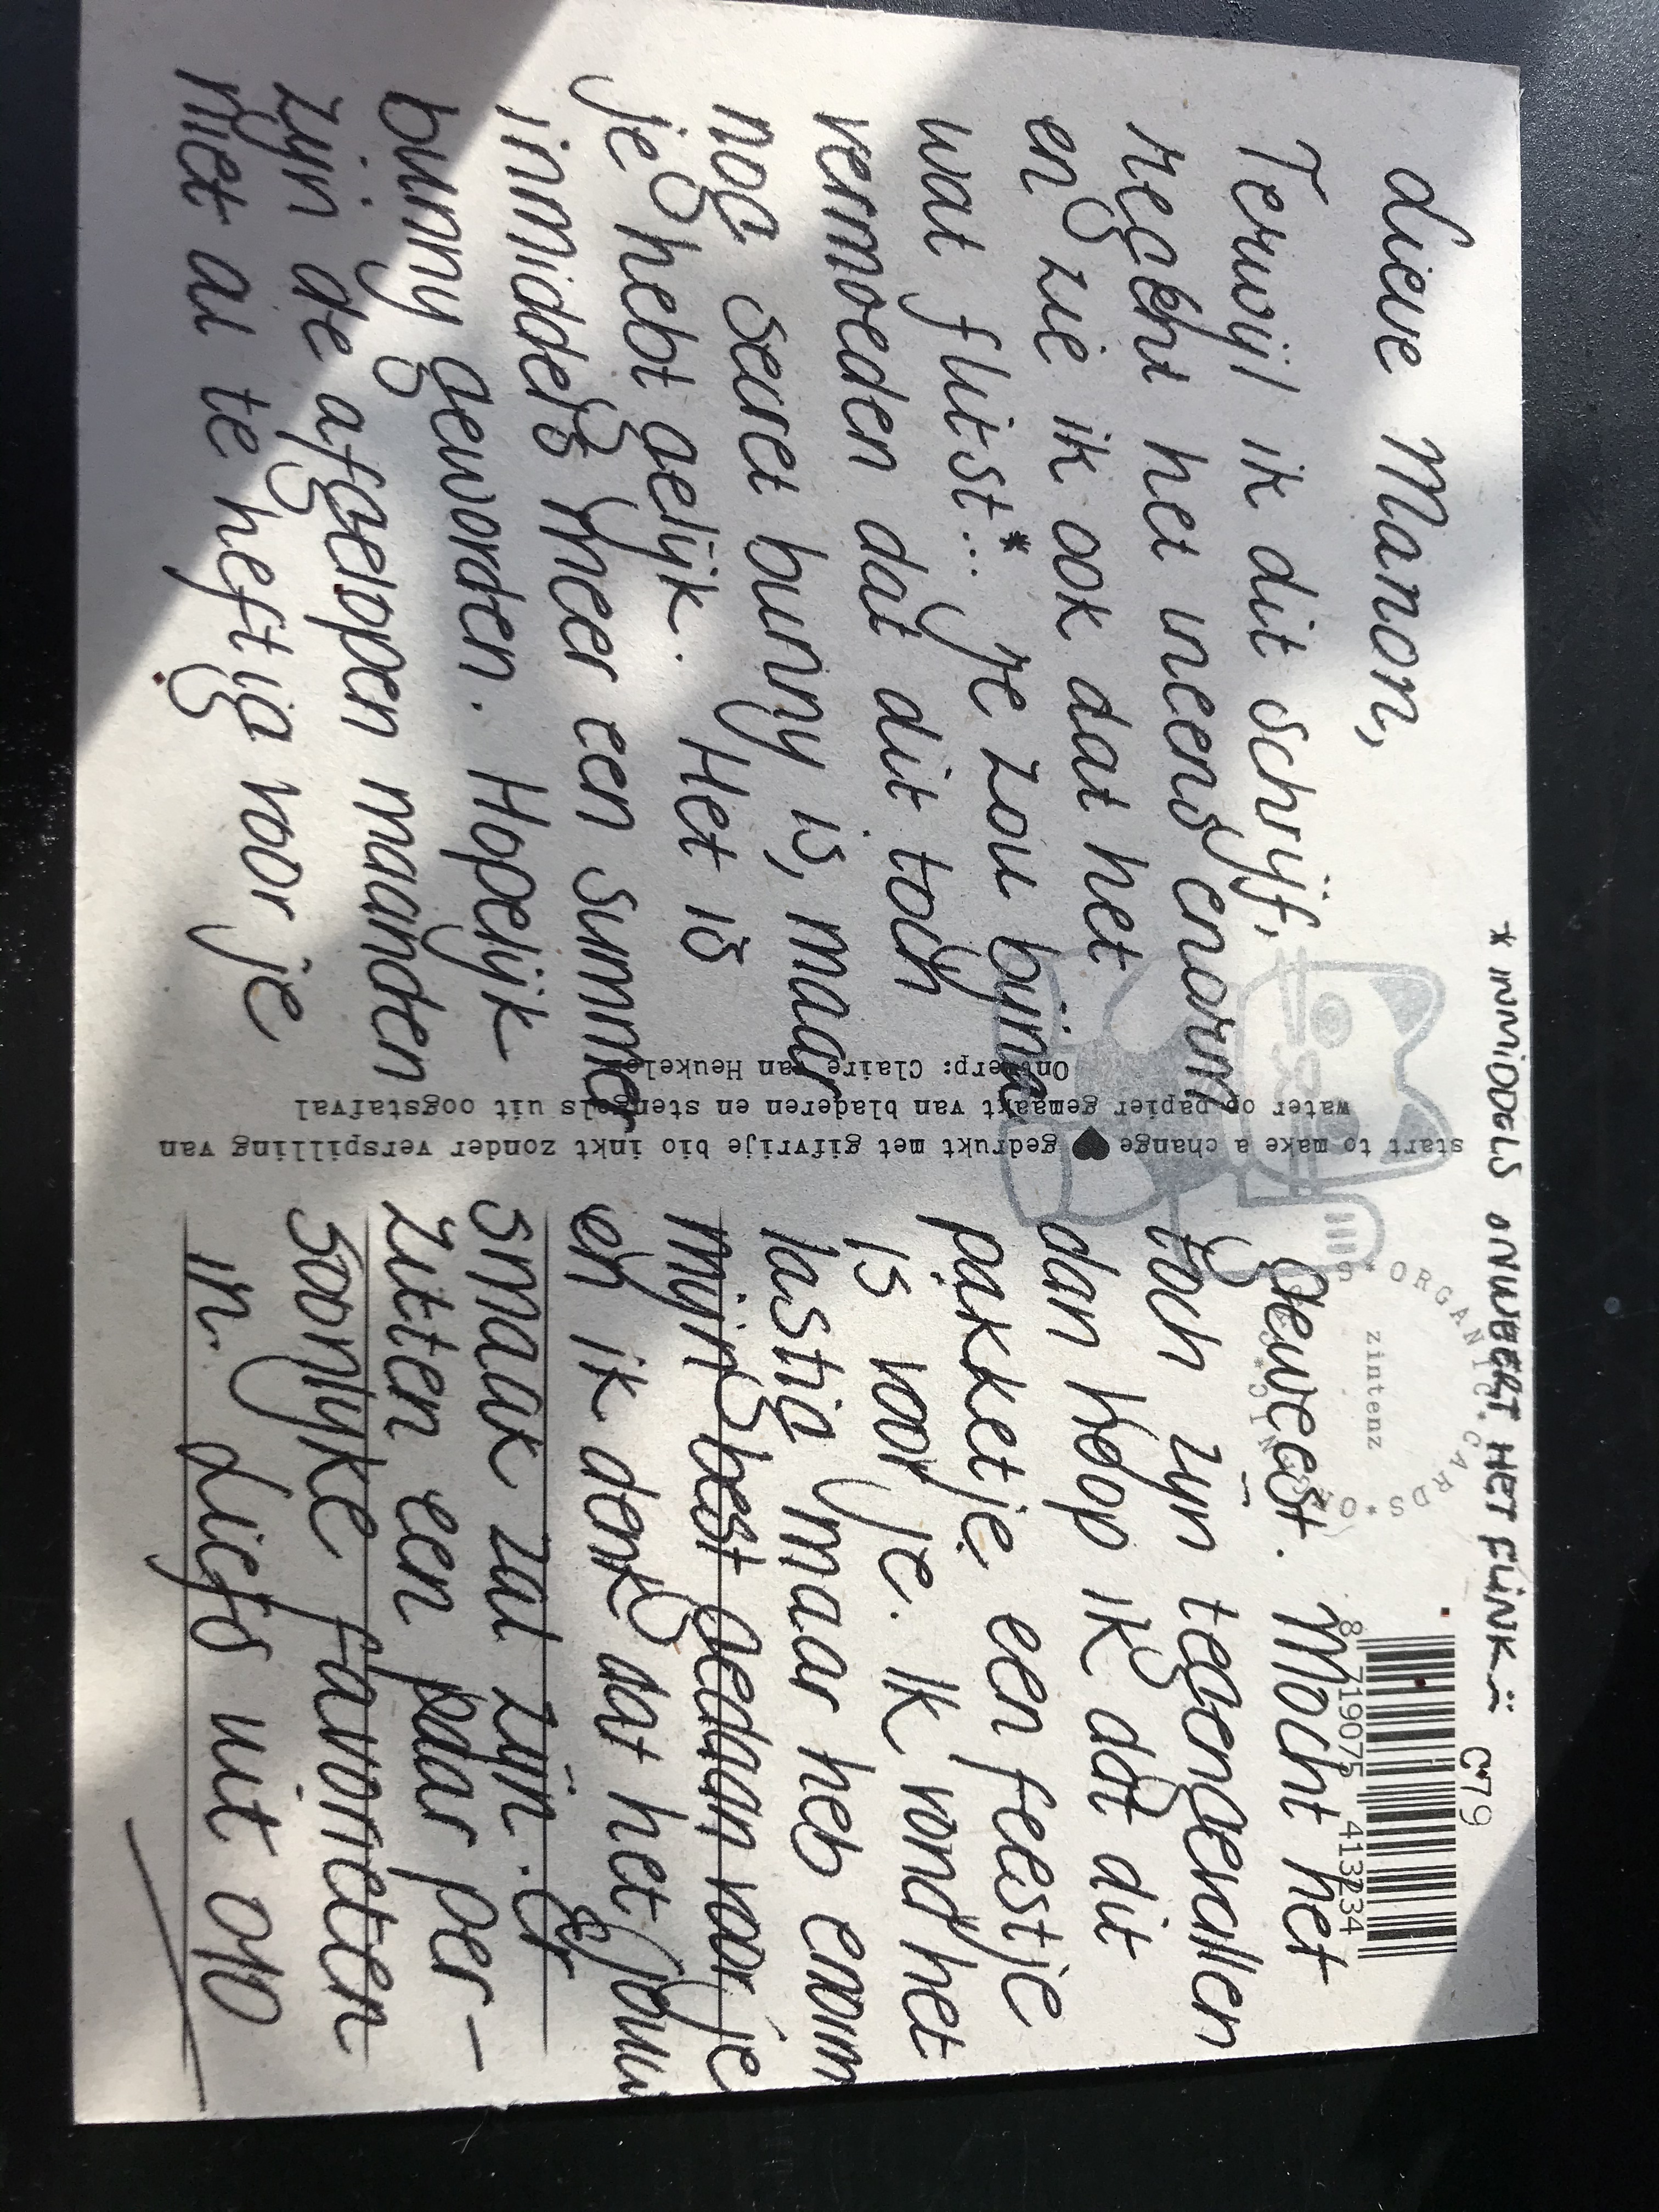 * INMIDDELS ONWEERT HET FLINK
Lieve Manon,
Terwijl ik dit schrijf,
regent het ineens enorm
en zie ik ook dat het
wat flitst*... Je zou bijna
vermoeden dat dit toch
nog secret bunny is, maar
je hebt gelijk. Het is
inmiddels meer een summer
bunny geworden. Hopelijk
zijn de afgelopen maanden
niet al te heftig voor je
geweest. Mocht het
toch zijn tegengevallen
dan hoop ik dat dit
pakketje een feestje
is voor je. Ik vond het
lastig maar heb enorm
mijn best gedaan voor je
en ik denk dat het jouw
smaak zal zijn. Er
zitten een paar per-
soonlijke favorieten
in. Liefs uit 010
start to make a change ♥ gedrukt met gifvrije bio inkt zonder verspilling van
water op papier gemaakt van bladeren en stengels uit oogstafval
Ontwerp: Claire van Heukelem
zintenz
ORGANIC CARDS * ORGANIC CARDS *
C79
8 719075 413234